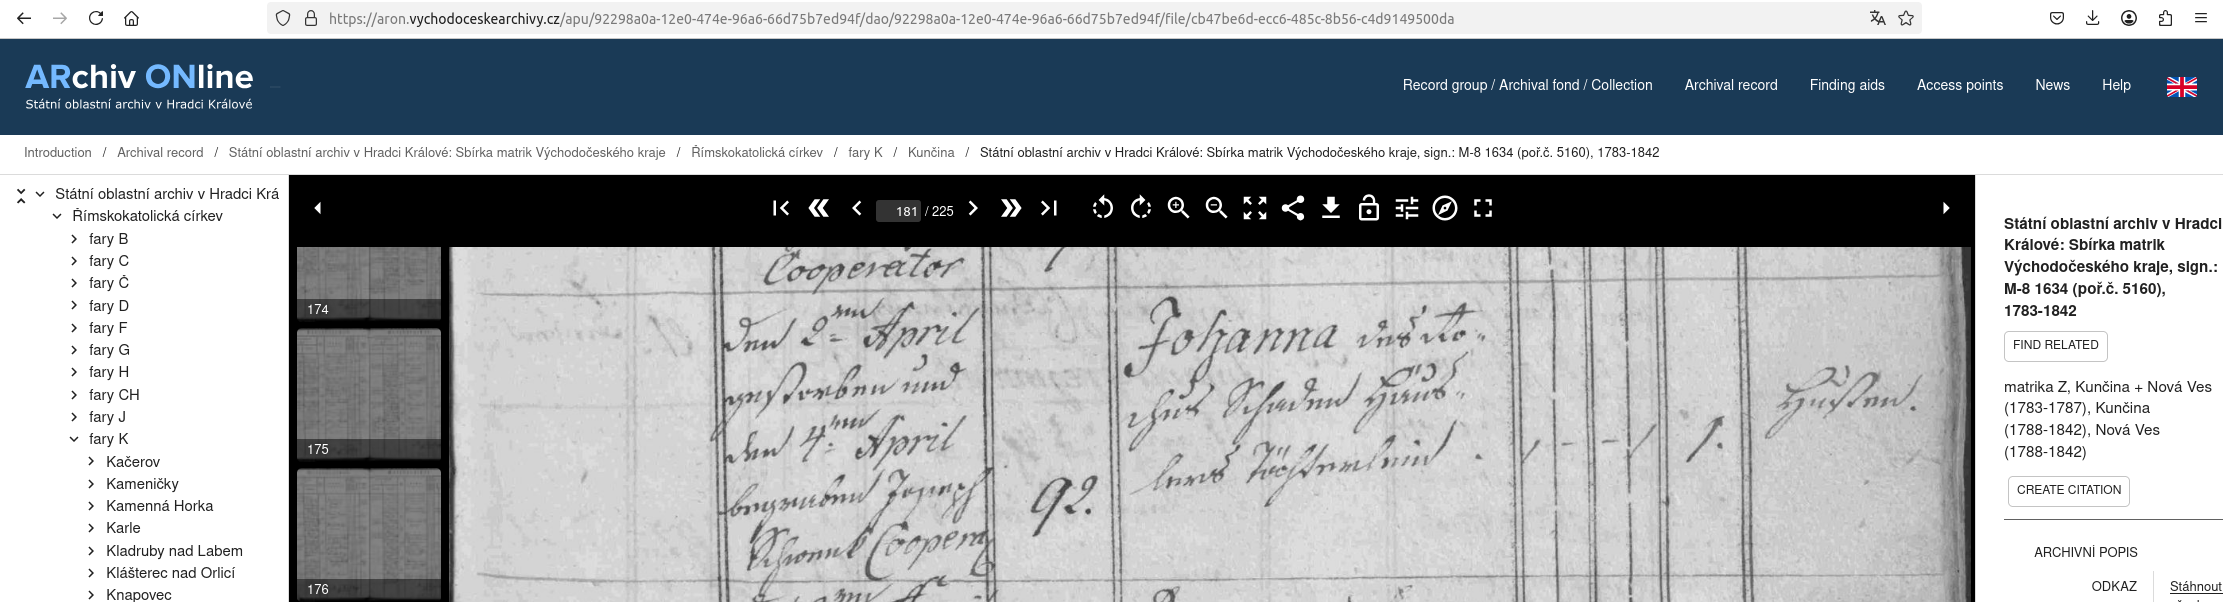 https://aron.vychodoceskearchivy.cz/apu/92298a0a-12e0-474e-96a6-66d75b7ed94f/dao/92298a0a-12e0-474e-96a6-66d75b7ed94f/file/cb47be6d-ecc6-485c-8b56-c4d9149500da
ARchiv ONline
Státní oblastní archiv v Hradci Králové
Record group / Archival fond / Collection
Archival record
Finding aids
Access points
News
Help
Introduction / Archival record / Státní oblastní archiv v Hradci Králové: Sbírka matrik Východočeského kraje / Římskokatolická církev / fary K / Kunčina / Státní oblastní archiv v Hradci Králové: Sbírka matrik Východočeského kraje, sign.: M-8 1634 (poř.č. 5160), 1783-1842
Státní oblastní archiv v Hradci Krá
Římskokatolická církev
fary B
fary C
fary Č
fary D
fary F
fary G
fary H
fary CH
fary J
fary K
Kačerov
Kameničky
Kamenná Horka
Karle
Kladruby nad Labem
Klášterec nad Orlicí
Knapovec
181 / 225
174
175
176
Cooperator
den 2ten April
gestorben und
den 4ten April
begraben Joseph
Coopera
92.
Johanna des Ro-
chus Schaden Häus-
lers Töchterlein
1.
Husten.
Státní oblastní archiv v Hradci
Králové: Sbírka matrik
Východočeského kraje, sign.:
M-8 1634 (poř.č. 5160),
1783-1842
FIND RELATED
matrika Z, Kunčina + Nová Ves
(1783-1787), Kunčina
(1788-1842), Nová Ves
(1788-1842)
CREATE CITATION
ARCHIVNÍ POPIS
ODKAZ
Stáhnout